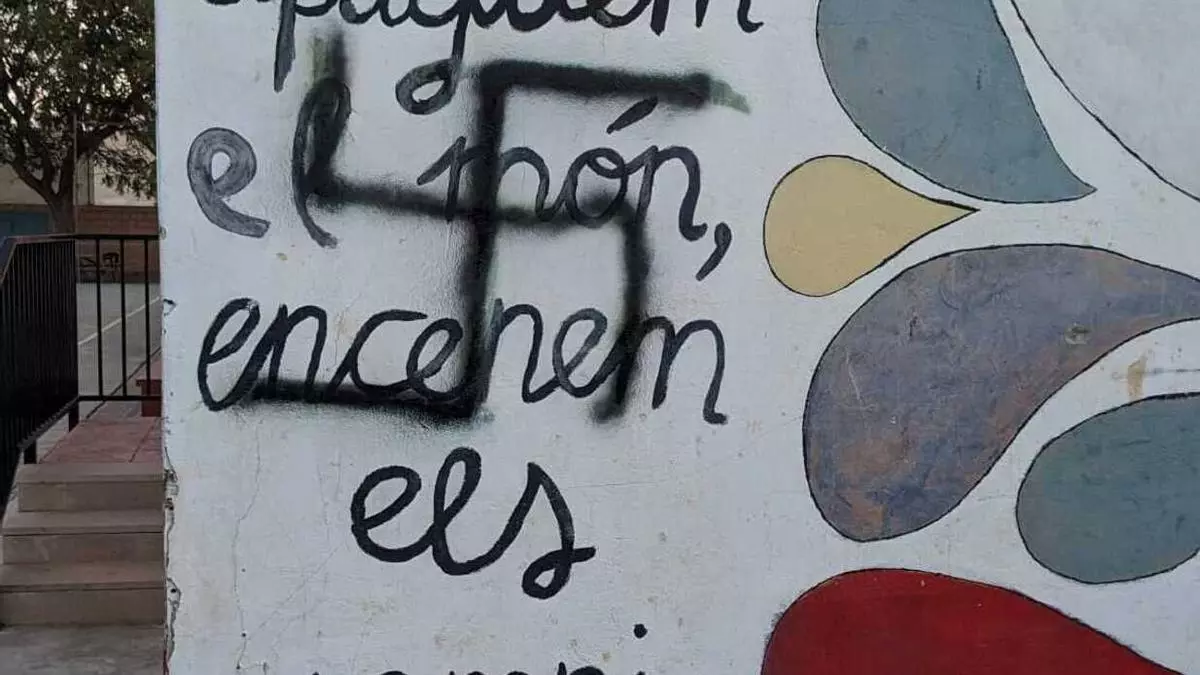 apaguem
el món,
encenem
els